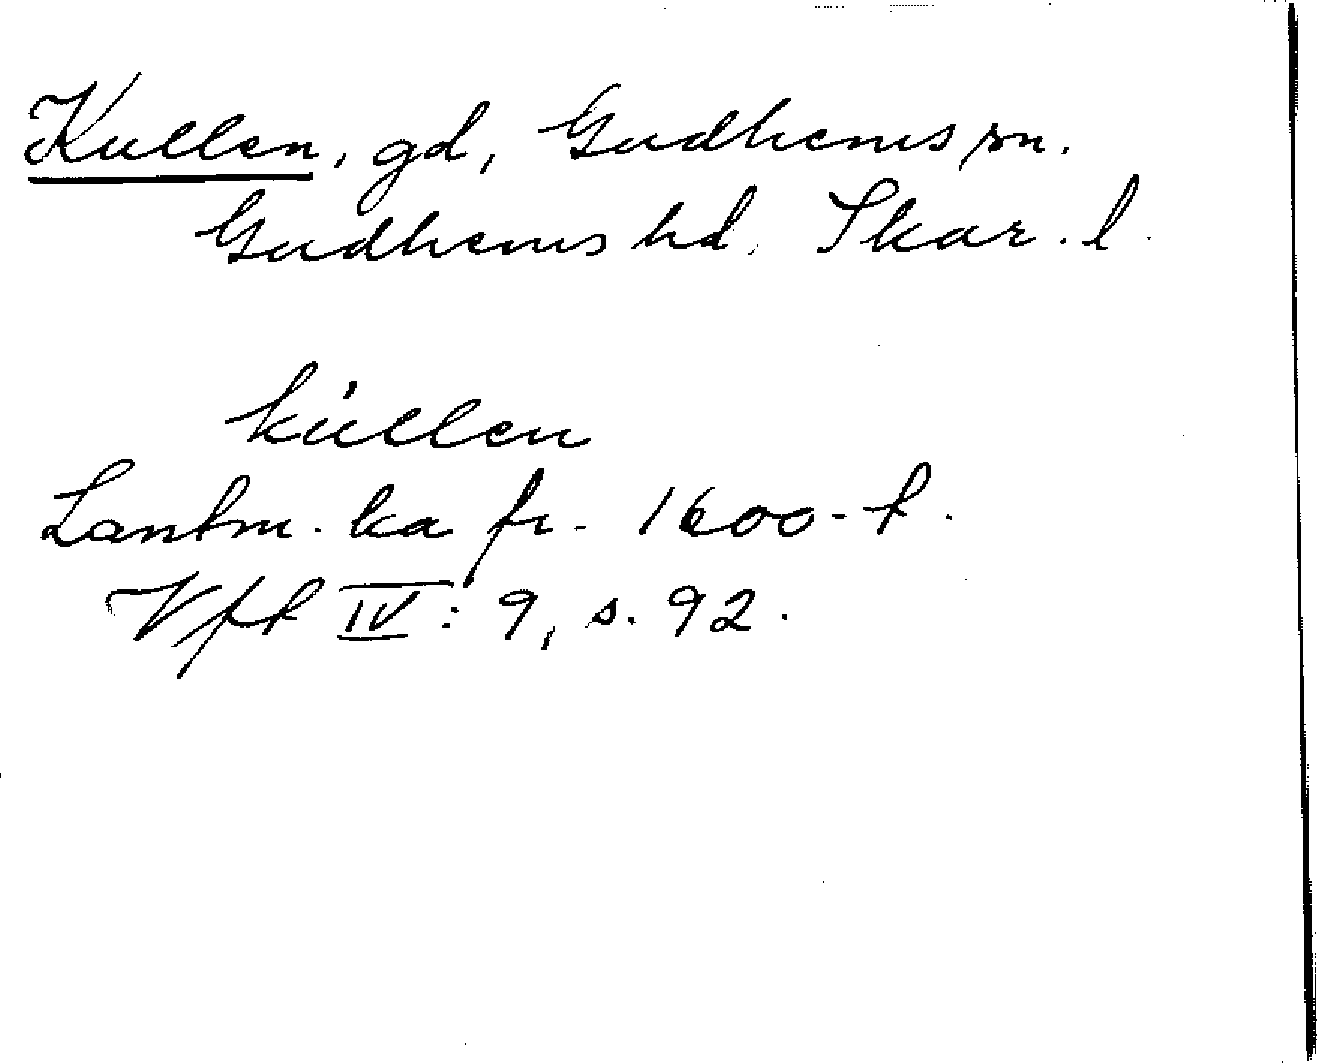 Kullen, gd, Gudhems sn.
Gudhems hd. Skar. l.
kúllen
Lantm. ka fr. 1600-t.
Vft IV: 9, s. 92.